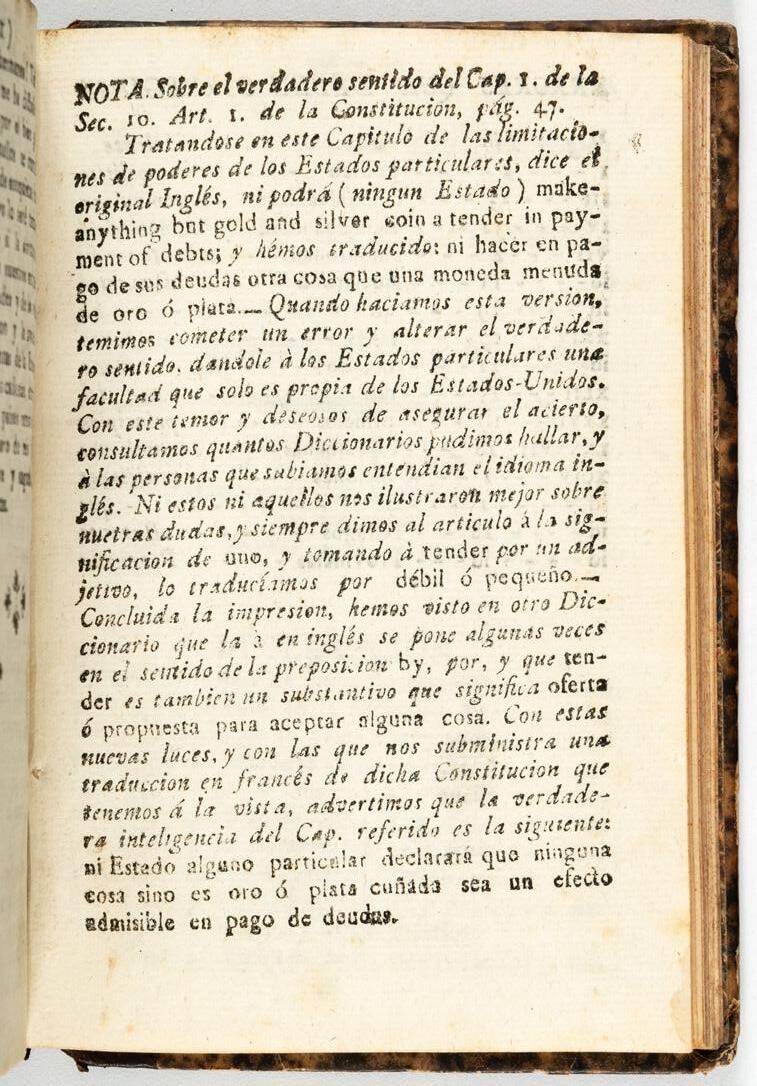 NOTA. Sobre el verdadero sentido del Cap. 1. de la
Sec. 10. Art. 1. de la Constitucion, pág. 47.
Tratandose en este Capitulo de las limitacio-
nes de poderes de los Estados particulares, dice el
original Inglés, ni podrá ( ningun Estado ) make-
anything but gold and silver coin a tender in pay-
ment of debts; y hémos traducido: ni hacer en pa-
go de sus deudas otra cosa que una moneda menuda
de oro ó plata.— Quando haciamos esta version,
temimos cometer un error y alterar el verdade-
ro sentido, dandole à los Estados particulares una
facultad que solo es propia de los Estados-Unidos.
Con este temor y deseosos de asegurar el acierto,
consultamos quantos Diccionarios pudimos hallar, y
à las personas que sabiamos entendian el idioma in-
glés. Ni estos ni aquellos nos ilustraron mejor sobre
nuetras dudas, y siempre dimos al articulo á la sig-
nificacion de uno, y tomando à tender por un ad-
jetivo, lo traducíamos por débil ó pequeño.—
Concluida la impresion, hemos visto en otro Dic-
cionario que la à en inglés se pone algunas veces
en el sentido de la preposicion by, por, y que ten-
der es tambien un substantivo que significa oferta
ó propuesta para aceptar alguna cosa. Con estas
nuevas luces, y con las que nos subministra una
traduccion en francés de dicha Constitucion que
tenemos á la vista, advertimos que la verdade-
ra inteligencia del Cap. referido es la siguiente:
ni Estado alguno particular declarará que ninguna
cosa sino es oro ó plata cuñada sea un efecto
admisible en pago de deudas.